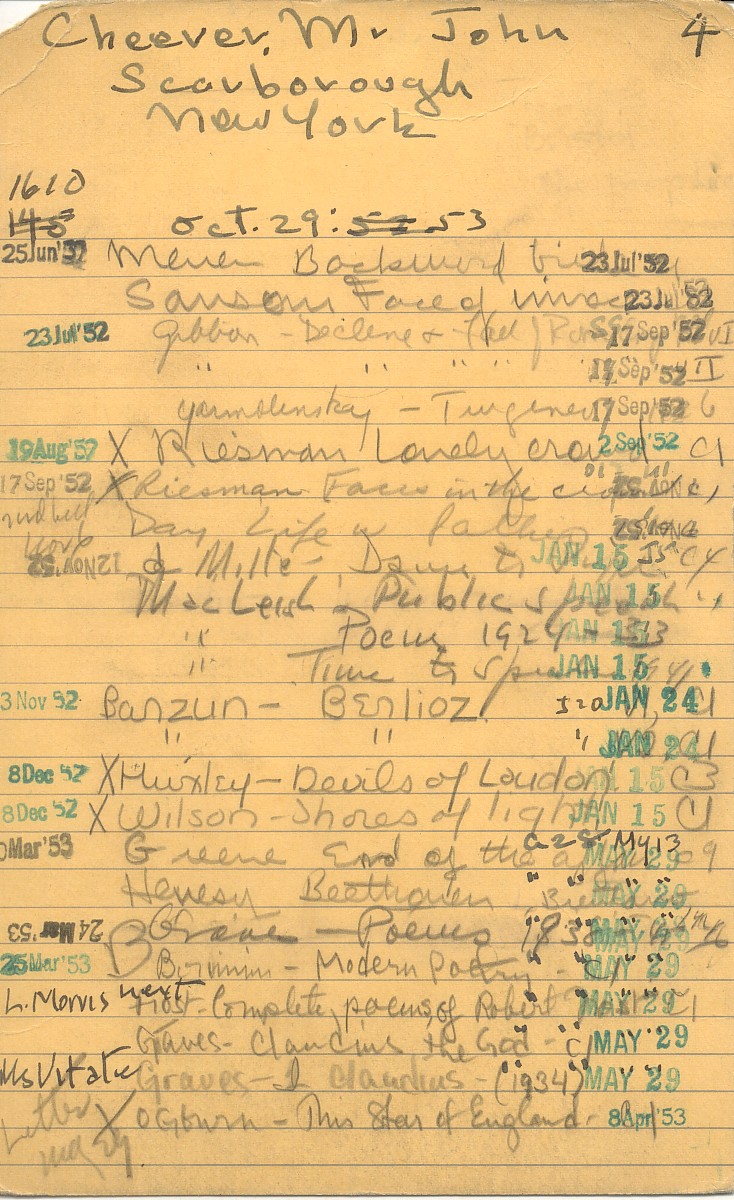 Cheever, Mr John 4
Scarborough
New York
1610
Oct. 29: 53
25 Jun '52 Menen Backward 23 Jul '52
Sansom Faces 23 Jul '52
23 Jul '52 Gibbon - Decline & Fall 17 Sep '52 VI
" " " " Sep '52 II
Yarmolinsky - Turgenev 17 Sep '52
19 Aug '52 X Riesman Lonely crowd 2 Sep '52 C1
17 Sep '52 X Riesman Faces in the crowd
Day Life w father
12 NOV '52 de Mille - Dance to JAN 15 C4
MacLeish - Public speech JAN 15
" Poems 1924-33 JAN 15
" Time to speak JAN 15 1941
3 Nov '52 Barzun - Berlioz. JAN 24 C1
" " " JAN 24 C1
8 Dec '52 X Huxley - Devils of Loudon JAN 15 C3
8 Dec '52 X Wilson - Shores of light JAN 15 C1
Mar '53 Greene End of the affair My 13 MAY 29
Hevesy Beethoven " " MAY 29
24 Mar '53 Graves - Poems 1938 MAY 29
25 Mar '53 - Modern Poetry - " MAY 29
L. Morris next Frost - Complete poems of Robert " MAY 29 C1
Graves - Claudius the God - C1 MAY 29
Ms Vitale Graves - I Claudius - (1934) MAY 29
Letter X Ogburn - This Star of England - 8 Apr '53